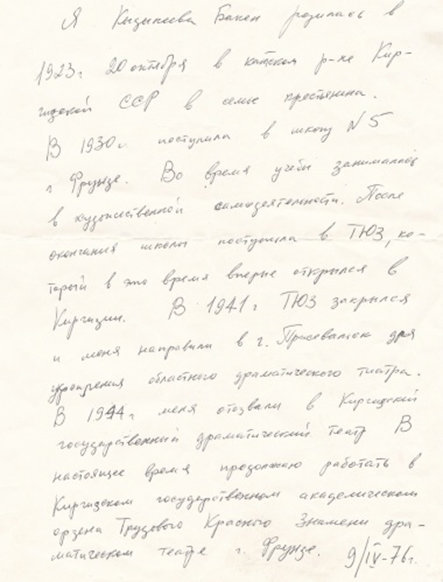 Я Кыдыкеева Бакен родилась в
1923г 20 октября в кантском р-не Кир-
гизской ССР в семье крестьянина.
В 1930г. поступила в школу N 5
г Фрунзе. Во время учебы занималась
в художественной самодеятельности. После
окончания школы поступила в ТЮЗ, ко-
торый в это время впервые открылся в
Киргизии. В 1941г ТЮЗ закрылся
и меня направили в г. Пржевальск для
укрепления областного драматического театра.
В 1944г меня отозвали в Киргизский
государственный драматический театр В
настоящее время продолжаю работать в
Киргизском государственном академическом
ордена Трудового Красного Знамени дра-
матическом театре г. Фрунзе. 9/IV-76г.